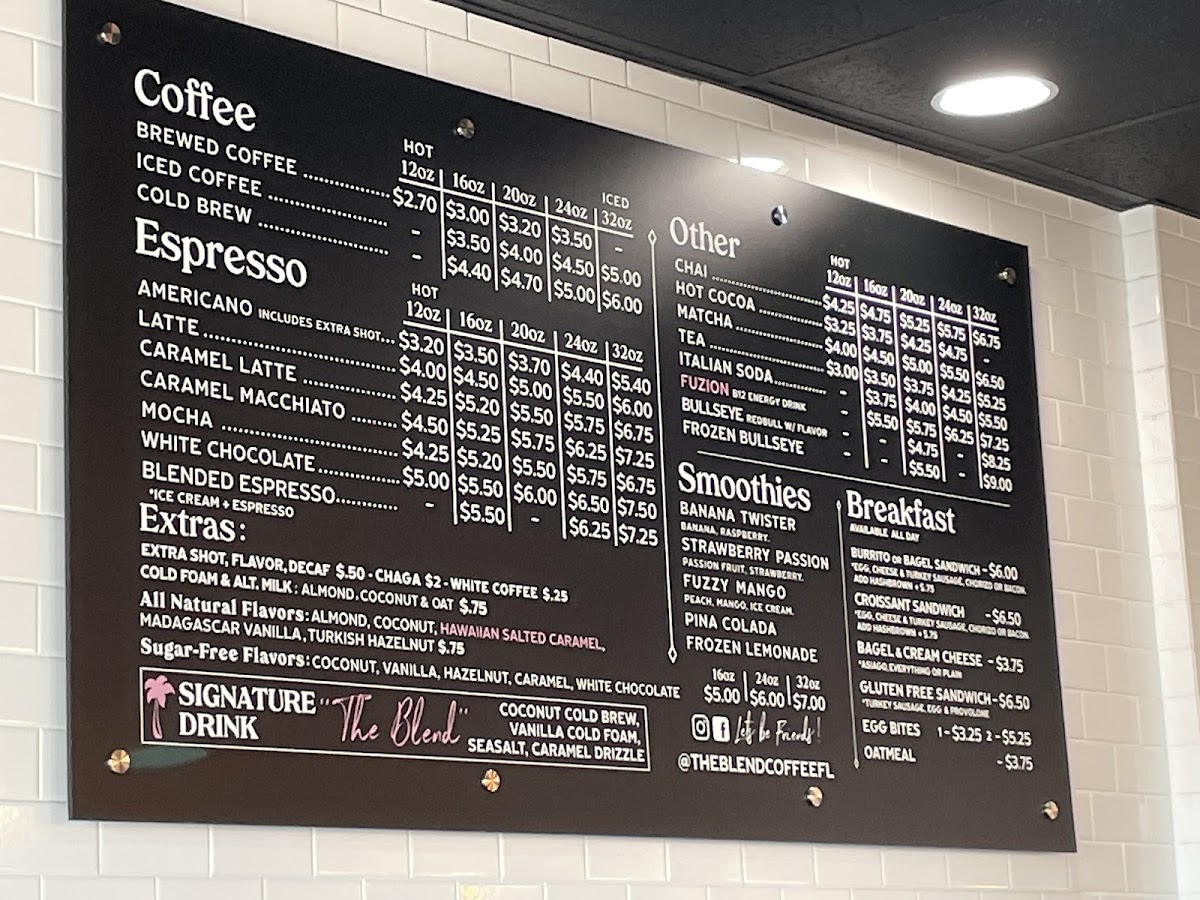 Coffee
HOT ICED
12oz 16oz 20oz 24oz 32oz
BREWED COFFEE ................ $2.70 $3.00 $3.20 $3.50 -
ICED COFFEE ...................... - $3.50 $4.00 $4.50 $5.00
COLD BREW ....................... - $4.40 $4.70 $5.00 $6.00
Espresso
HOT
12oz 16oz 20oz 24oz 32oz
AMERICANO INCLUDES EXTRA SHOT... $3.20 $3.50 $3.70 $4.40 $5.40
LATTE ................................. $4.00 $4.50 $5.00 $5.50 $6.00
CARAMEL LATTE ................ $4.25 $5.20 $5.50 $5.75 $6.75
CARAMEL MACCHIATO ........ $4.50 $5.25 $5.75 $6.25 $7.25
MOCHA ............................... $4.25 $5.20 $5.50 $5.75 $6.75
WHITE CHOCOLATE .............. $5.00 $5.50 $6.00 $6.50 $7.50
BLENDED ESPRESSO........... - $5.50 - $6.25 $7.25
*ICE CREAM + ESPRESSO
Extras:
EXTRA SHOT, FLAVOR, DECAF $.50 - CHAGA $2 - WHITE COFFEE $.25
COLD FOAM & ALT. MILK: ALMOND. COCONUT & OAT $.75
All Natural Flavors: ALMOND, COCONUT, HAWAIIAN SALTED CARAMEL,
MADAGASCAR VANILLA, TURKISH HAZELNUT $.75
Sugar-Free Flavors: COCONUT, VANILLA, HAZELNUT, CARAMEL, WHITE CHOCOLATE
SIGNATURE DRINK
"The Blend"
COCONUT COLD BREW,
VANILLA COLD FOAM,
SEASALT, CARAMEL DRIZZLE
Other
HOT
12oz 16oz 20oz 24oz 32oz
CHAI ........................ $4.25 $4.75 $5.25 $5.75 $6.75
HOT COCOA ............. $3.25 $3.75 $4.25 $4.75 -
MATCHA .................. $4.00 $4.50 $5.00 $5.50 $6.50
TEA ......................... $3.00 $3.50 $3.75 $4.25 $5.25
ITALIAN SODA........... - $3.75 $4.00 $4.50 $5.50
FUZION B12 ENERGY DRINK - $5.50 $5.75 $6.25 $7.25
BULLSEYE REDBULL W/ FLAVOR - - $4.75 - $8.25
FROZEN BULLSEYE - - $5.50 - $9.00
Smoothies
BANANA TWISTER
BANANA, RASPBERRY.
STRAWBERRY PASSION
PASSION FRUIT, STRAWBERRY.
FUZZY MANGO
PEACH, MANGO, ICE CREAM.
PINA COLADA
FROZEN LEMONADE
16oz 24oz 32oz
$5.00 $6.00 $7.00
Let's be Friends!
@THEBLENDCOFFEEFL
Breakfast
AVAILABLE ALL DAY
BURRITO OR BAGEL SANDWICH - $6.00
*EGG, CHEESE & TURKEY SAUSAGE, CHORIZO OR BACON.
ADD HASHBROWN + $.75
CROISSANT SANDWICH - $6.50
*EGG, CHEESE & TURKEY SAUSAGE, CHORIZO OR BACON.
ADD HASHBROWN + $.75
BAGEL & CREAM CHEESE - $3.75
*ASIAGO, EVERYTHING OR PLAIN
GLUTEN FREE SANDWICH - $6.50
*TURKEY SAUSAGE, EGG & PROVOLONE
EGG BITES 1 - $3.25 2 - $5.25
OATMEAL - $3.75